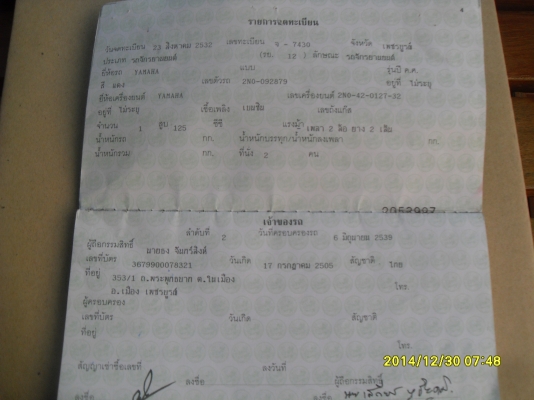 4
รายการจดทะเบียน
วันจดทะเบียน 23 สิงหาคม 2532 เลขทะเบียน 9 - 7430 จังหวัด
ประเภท รถจักรยานยนต์ (รย. 12 ) ลักษณะ รถจักรยานยนต์
ยี่ห้อรถ YAMAHA แบบ รุ่นปี ค.ศ.
สี แดง เลขตัวรถ 2N0-092879 อยู่ที่ ไม่ระบุ
ยี่ห้อเครื่องยนต์ YAMAHA เลขเครื่องยนต์ 2N0-42-0127-32
อยู่ที่ ไม่ระบุ เชื้อเพลิง เบนซิน เลขถังแก๊ส
จำนวน 1 สูบ 125 ซีซี แรงม้า เพลา 2 ล้อ ยาง 2 เส้น
น้ำหนักรถ กก. น้ำหนักบรรทุก/น้ำหนักลงเพลา กก.
น้ำหนักรวม กก. ที่นั่ง 2 คน
เจ้าของรถ
ลำดับที่ 2 วันที่ครอบครองรถ 6 มิถุนายน 2539
ผู้ถือกรรมสิทธิ์
เลขที่บัตร 3679900078321 วันเกิด 17 กรกฎาคม 2505 สัญชาติ ไทย
ที่อยู่ 353/1 ต.ในเมือง
อ.เมือง โทร.
ผู้ครอบครอง
เลขที่บัตร วันเกิด สัญชาติ
ที่อยู่
โทร.
สัญญาเช่าซื้อเลขที่ ลงวันที่
2014/12/30 07:48
ลงชื่อ ลงชื่อ ผู้ถือกรรมสิทธิ์